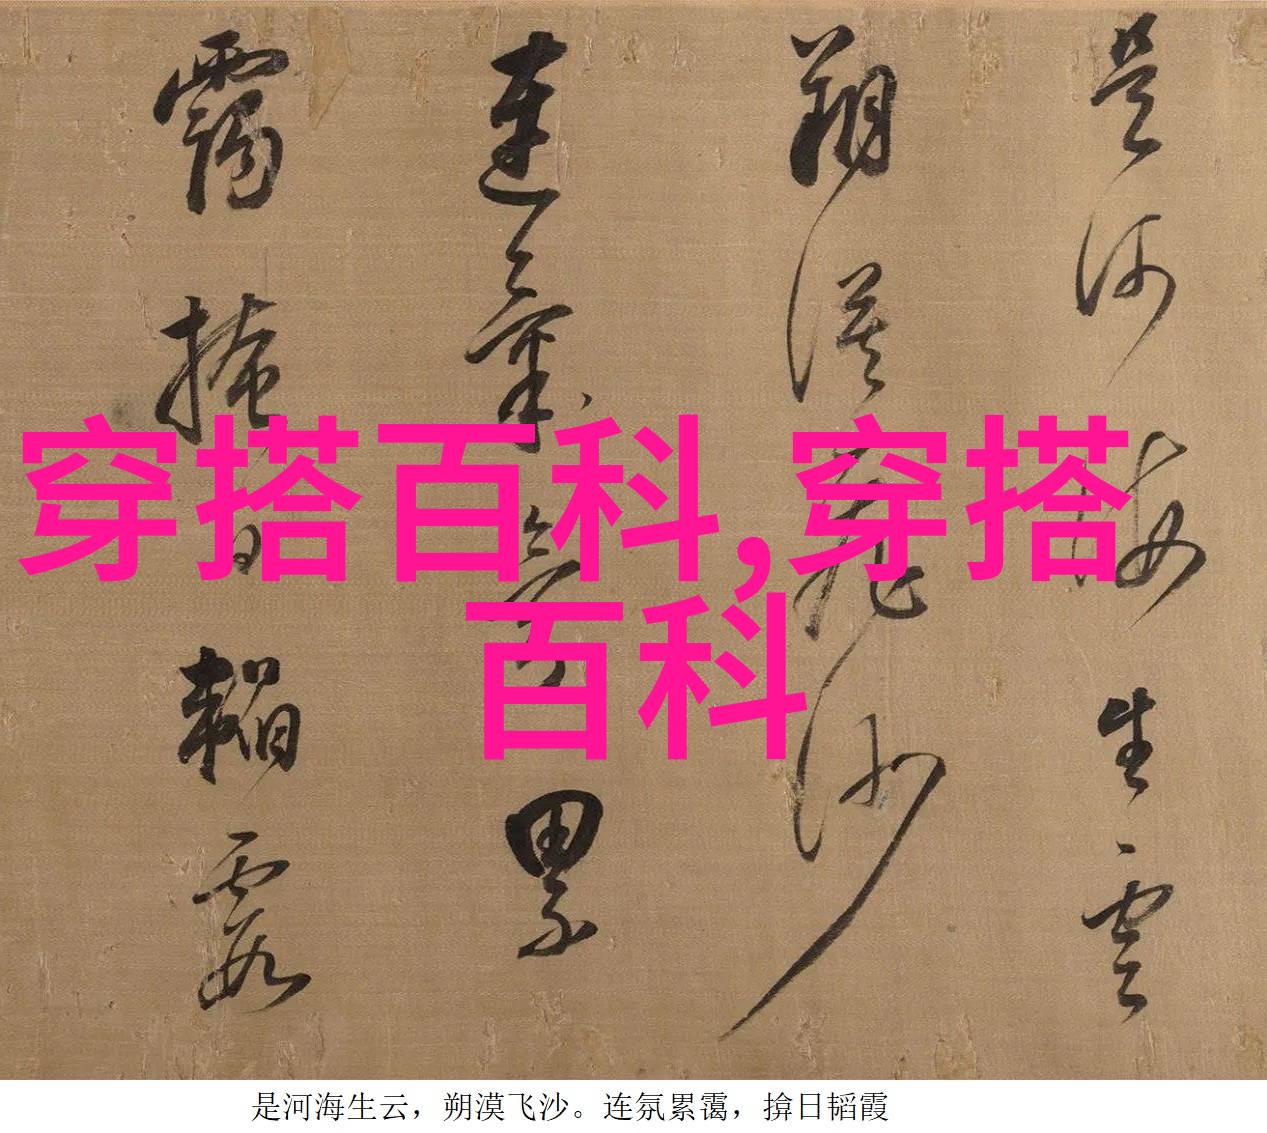 是河海生雲
朔漠飛沙
連氛累
靄掩日韜霞
穿搭百科,穿搭
百科
是河海生云，朔漠飞沙。连氛累霭，揜日韬霞